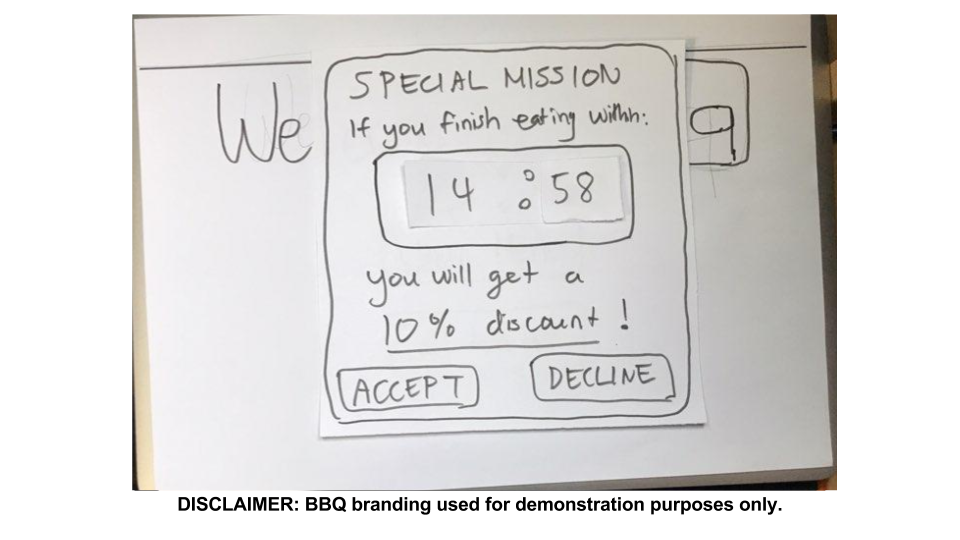 SPECIAL MISSION
We
If you finish eating within:
q
14 : 58
you will get a
10% discount !
ACCEPT
DECLINE
DISCLAIMER: BBQ branding used for demonstration purposes only.